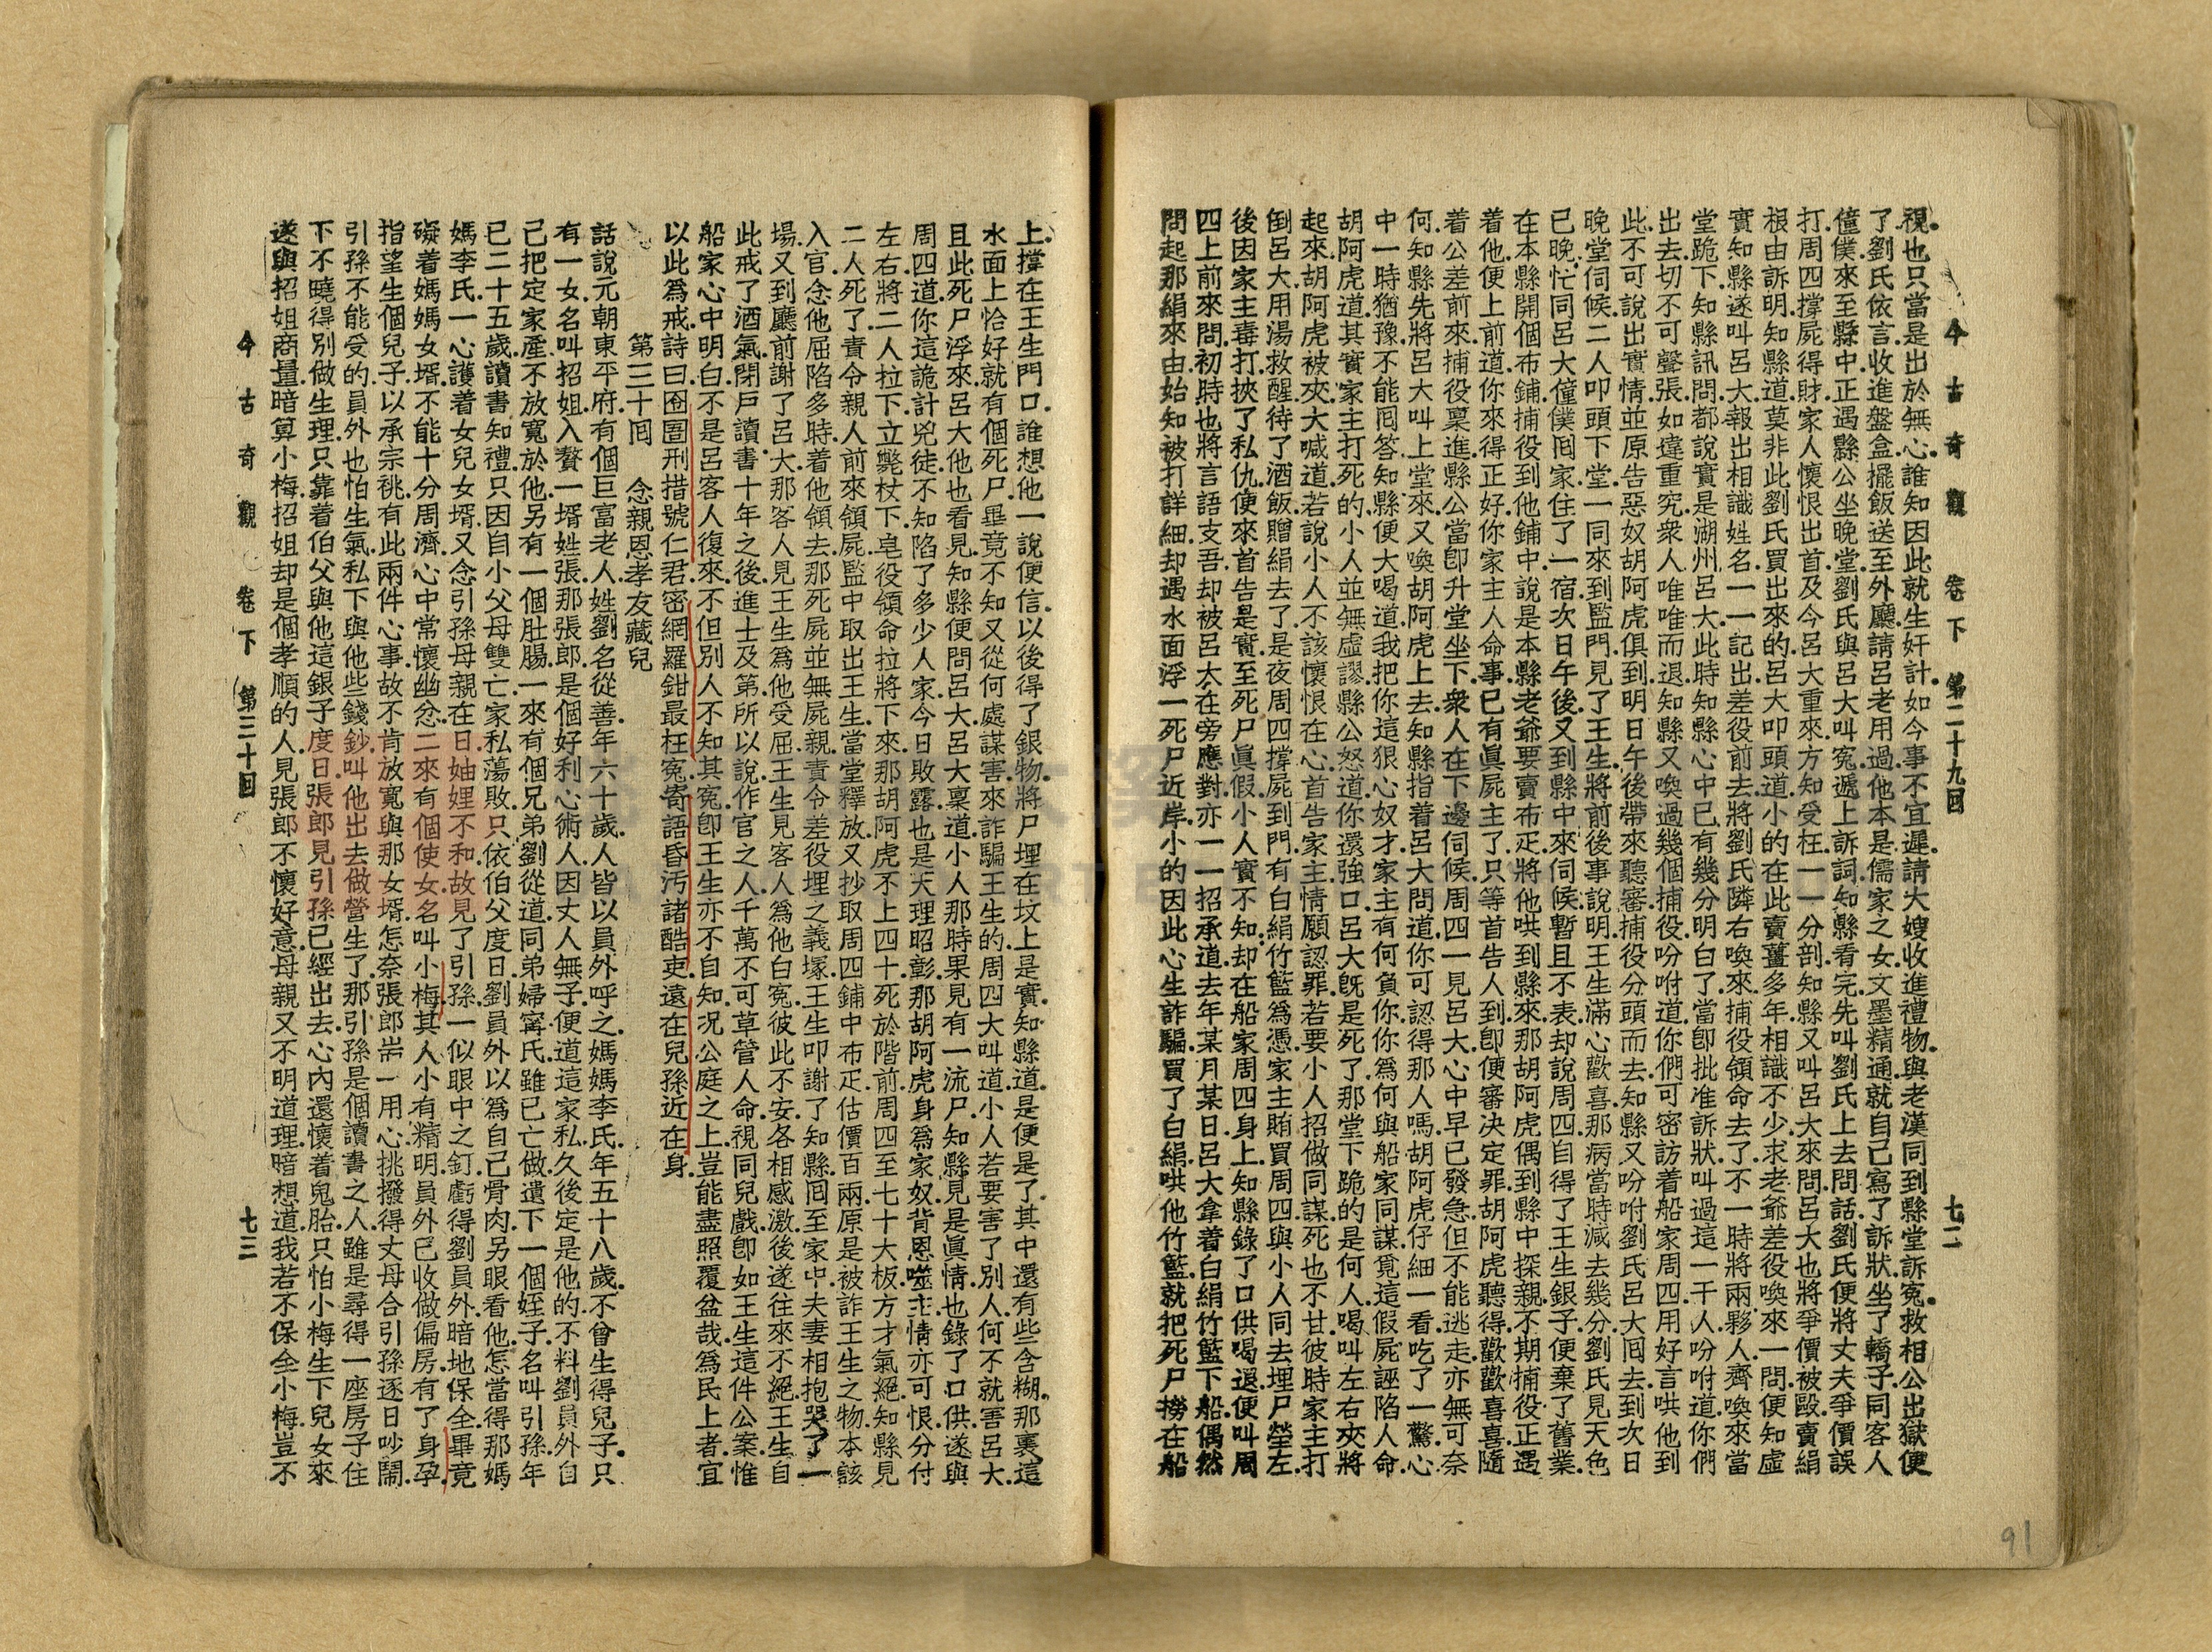 今古奇觀　卷下　第二十九回　七二
視也只當是出於無心誰知因此就生奸計如今事不宜遲請大嫂收進禮物與老漢同到縣堂訴冤救相公出獄便
了劉氏依言收進盤盒擺飯送至外廳請呂老用過他本是儒家之女文墨精通就自己寫了訴狀坐了轎子同客人
僮僕來至縣中正遇縣公坐晚堂劉氏與呂大叫冤遞上訴詞知縣看完先叫劉氏上去問話劉氏便將丈夫爭價誤
打周四撐屍得財家人懷恨出首及今呂大重來方知受枉一一分剖知縣又叫呂大來問呂大也將爭價被毆賣絹
根由訴明知縣道莫非此劉氏買出來的呂大叩頭道小的在此賣薑多年相識不少求老爺差役喚來一問便知虛
實知縣遂叫呂大報出相識姓名一一記出差役前去將劉氏隣右喚來捕役領命去了不一時將兩夥人齊喚來當
堂跪下知縣訊問都說實是湖州呂大此時知縣心中已有幾分明白了當卽批准訴狀叫過這一干人吩咐道你們
出去切不可聲張如違重究衆人唯唯而退知縣又喚過幾個捕役吩咐道你們可密訪着船家周四用好言哄他到
此不可說出實情並原告惡奴胡阿虎俱到明日午後帶來聽審捕役分頭而去知縣又吩咐劉氏呂大囘去到次日
晚堂伺候二人叩頭下堂一同來到監門見了王生將前後事說明王生滿心歡喜那病當時減去幾分劉氏見天色
已晚忙同呂大僮僕囘家住了一宿次日午後又到縣中來伺候暫且不表却說周四自得了王生銀子便棄了舊業
在本縣開個布鋪捕役到他鋪中說是本縣老爺要賣布疋將他哄到縣來那胡阿虎偶到縣中探親不期捕役正遇
着他便上前道你來得正好你家主人命事已有眞屍主了只等首告人到卽便審決定罪胡阿虎聽得歡歡喜喜隨
着公差前來捕役稟進縣公當卽升堂坐下衆人在下邊伺候周四一見呂大心中早已發急但不能逃走亦無可奈
何知縣先將呂大叫上堂來又喚胡阿虎上去知縣指着呂大問道你可認得那人嗎胡阿虎仔細一看吃了一驚心
中一時猶豫不能囘答知縣便大喝道我把你這狠心奴才家主有何負你你爲何與船家同謀覓這假屍誣陷人命
胡阿虎道其實家主打死的小人並無虛謬縣公怒道你還強口呂大旣是死了那堂下跪的是何人喝叫左右夾將
起來胡阿虎被夾大喊道若說小人不該懷恨在心首告家主情願認罪若要小人招做同謀死也不甘彼時家主打
倒呂大用湯救醒待了酒飯贈絹去了是夜周四撐屍到門有白絹竹籃爲憑家主賄買周四與小人同去埋尸塋左
後因家主毒打挾了私仇便來首告是實至死尸眞假小人實不知却在船家周四身上知縣錄了口供喝退便叫周
四上前來問初時也將言語支吾却被呂大在旁應對亦一一招承道去年某月某日呂大拿着白絹竹籃下船偶然
問起那絹來由始知被打詳細却遇水面浮一死尸近岸小的因此心生詐騙買了白絹哄他竹籃就把死尸撈在船
上撐在王生門口誰想他一說便信以後得了銀物將尸埋在坟上是實知縣道是便是了其中還有些含糊那裏這
水面上恰好就有個死尸畢竟不知又從何處謀害來詐騙王生的周四大叫道小人若要害了別人何不就害呂大
且此死尸浮來呂大他也看見知縣便問呂大呂大稟道小人那時果見有一流尸知縣見是眞情也錄了口供遂與
周四道你這詭計兇徒不知陷了多少人家今日敗露也是天理昭彰那胡阿虎身爲家奴背恩噬主情亦可恨分付
左右將二人拉下立斃杖下皂役領命拉將下來那胡阿虎不上四十死於階前周四至七十大板方才氣絕知縣見
二人死了責令親人前來領屍監中取出王生當堂釋放又抄取周四鋪中布疋估價百兩原是被詐王生之物本該
入官念他屈陷多時着他領去那死屍並無屍親責令差役埋之義塚王生叩謝了知縣囘至家中夫妻相抱哭了一
場又到廳前謝了呂大那客人見王生爲他受屈王生見客人爲他白冤彼此不安各相感激後遂往來不絕王生自
此戒了酒氣閉戶讀書十年之後進士及第所以說作官之人千萬不可草管人命視同兒戲卽如王生這件公案惟
船家心中明白不是呂客人復來不但別人不知其冤卽王生亦不自知况公庭之上豈能盡照覆盆哉爲民上者宜
以此爲戒詩曰囹圄刑措號仁君密網羅鉗最枉冤寄語昏汚諸酷吏遠在兒孫近在身
第三十囘　念親恩孝友藏兒
話說元朝東平府有個巨富老人姓劉名從善年六十歲人皆以員外呼之媽媽李氏年五十八歲不曾生得兒子只
有一女名叫招姐入贅一壻姓張那張郎是個好利心術人因丈人無子便道這家私久後定是他的不料劉員外自
己把定家產不放寬於他另有一個肚腸一來有個兄弟劉從道同弟婦寗氏雖已亡做遺下一個姪子名叫引孫年
已二十五歲讀書知禮只因自小父母雙亡家私蕩敗只依伯父度日劉員外以爲自己骨肉另眼看他怎當得那媽
媽李氏一心護着女兒女壻又念引孫母親在日妯娌不和故見了引孫一似眼中之釘虧得劉員外暗地保全畢竟
礙着媽媽女壻不能十分周濟心中常懷幽忿二來有個使女名叫小梅其人小有精明員外已收做偏房有了身孕
指望生個兒子以承宗祧有此兩件心事故不肯放寬與那女壻怎奈張郎耑一用心挑撥得丈母合引孫逐日吵鬧
引孫不能受的員外也怕生氣私下與他些錢鈔叫他出去做營生了那引孫是個讀書之人雖是尋得一座房子住
下不曉得別做生理只靠着伯父與他這銀子度日張郎見引孫已經出去心內還懷着鬼胎只怕小梅生下兒女來
遂與招姐商量暗算小梅招姐却是個孝順的人見張郎不懷好意母親又不明道理暗想道我若不保全小梅豈不
今古奇觀　卷下　第三十回　七三
91